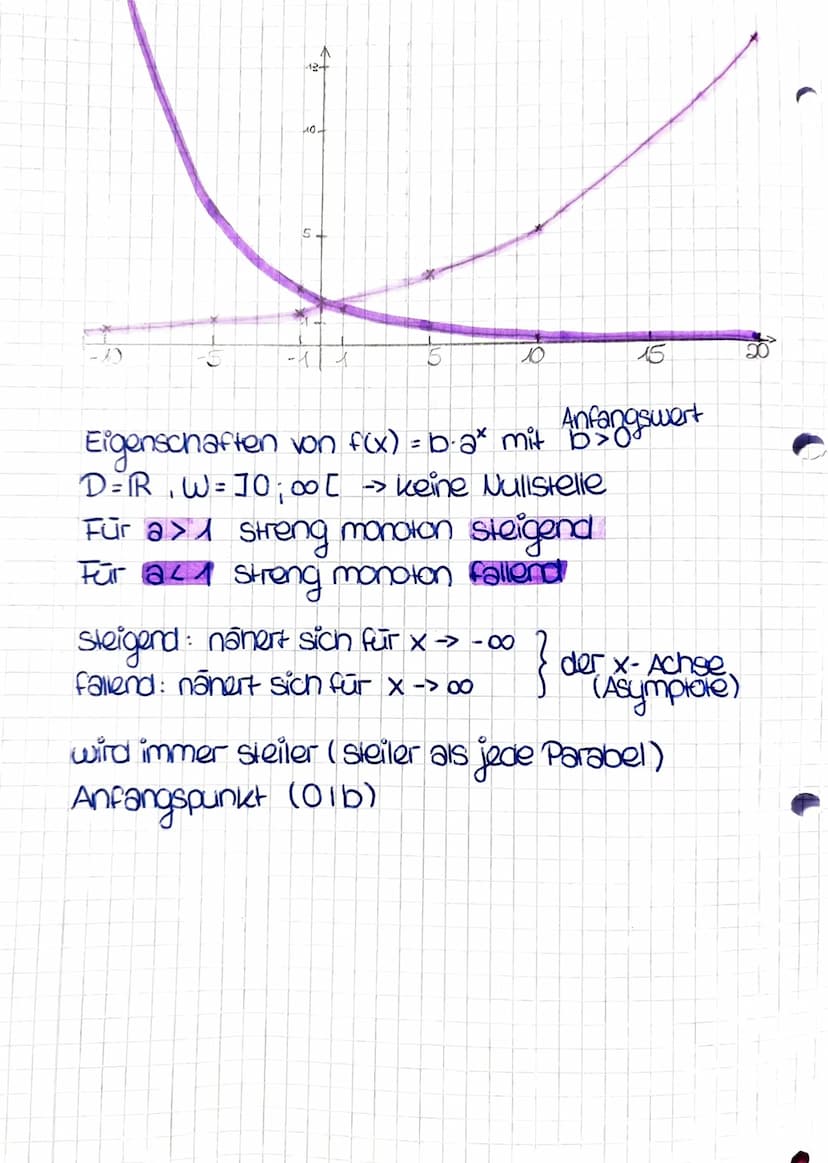 12
10
5
1
-10 -5 -1 1 5 10 15 20
Anfangswert
Eigenschaften von f(x) = b·aˣ mit b>0
D=ℝ , W = ]0 ; ∞ [ -> keine Nullstelle
Für a > 1 streng monoton steigend
Für a < 1 streng monoton fallend
steigend: nähert sich für x -> -∞ } der x-Achse
fallend: nähert sich für x -> ∞ (Asymptote)
wird immer steiler (steiler als jede Parabel)
Anfangspunkt (0|b)